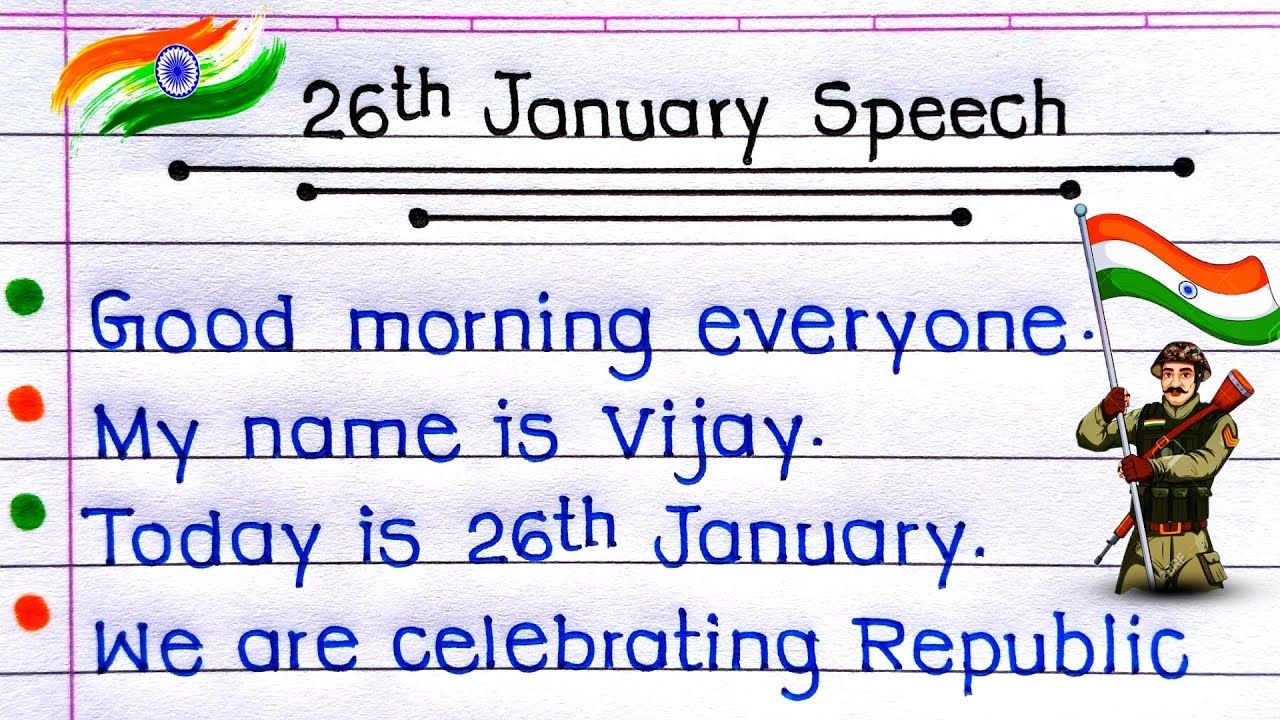 26th January Speech
Good morning everyone.
My name is Vijay.
Today is 26th January.
We are celebrating Republic